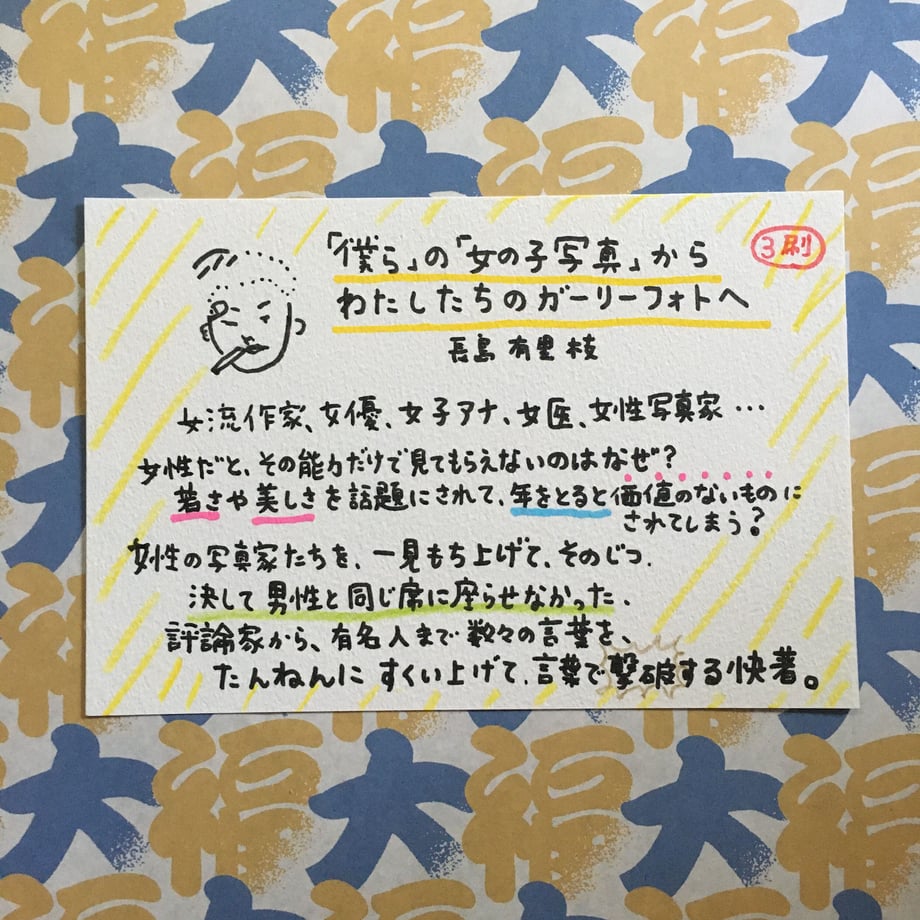 「僕ら」の「女の子写真」から
3刷
わたしたちのガーリーフォトへ
長島有里枝
女流作家、女優、女子アナ、女医、女性写真家…
女性だと、その能力だけで見てもらえないのはなぜ?
若さや美しさを話題にされて、年をとると価値のないものに
されてしまう?
女性の写真家たちを、一見もち上げて、そのじつ、
決して男性と同じ席に座らせなかった、
評論家から、有名人まで数々の言葉を、
たんねんにすくい上げて、言葉で撃破する快著。
大福